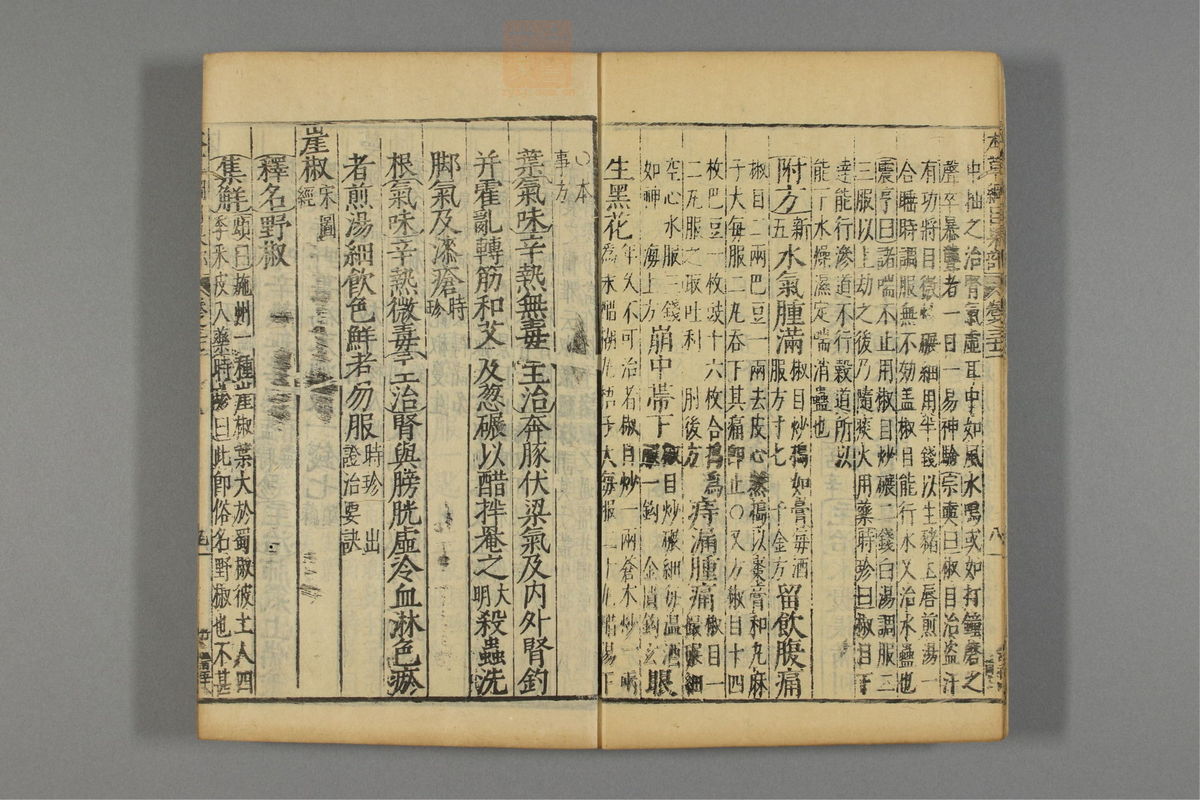 中抽之治腎氣虛耳中如風水鳴或如打鐘磬之
聲卒暴聾者一日一易神驗宗奭曰椒目治盜汗
有功將目微炒碾細用半錢以生豬上唇煎湯一
合睡時調服無不効盖椒目能行水又治水蠱也
震亨曰諸喘不止用椒目炒碾二錢白湯調服二
三服以上劫之後乃隨痰火用藥時珍曰椒目下
達能行滲道不行穀道所以
能下水燥濕定喘消蠱也
附方新五水氣腫滿椒目炒搗如膏每酒服方寸七千金方留飲腹痛
椒目二兩巴豆一兩去皮心熬搗以棗膏和丸麻
子大每服二丸吞下其痛即止〇又方椒目十四
枚巴豆一枚豉十六枚合搗為
二丸服之取吐利肘後方痔漏腫痛椒目一撮碾細
空心水服三錢如神海上方崩中帶下椒目炒碾細每溫酒服一鈎金匱鈎玄眼
生黑花年久不可治者椒目炒一兩蒼朮炒一兩為末醋糊丸梧子大每服二十丸醋湯下
〇本
事方
葉氣味辛熱無毒主治奔豚伏梁氣及內外腎釣
并霍亂轉筋和艾及葱碾以醋拌罨之大明殺蟲洗
脚氣及漆瘡時珍
根氣味辛熱微毒主治腎與膀胱虛冷血淋色瘀
者煎湯細飲色鮮者勿服時珍出證治要訣
崖椒宋圖經
釋名野椒
集解頌曰施州一種崖椒葉大於蜀椒彼土人四
季采皮入藥時珍曰此即俗名野椒也不甚